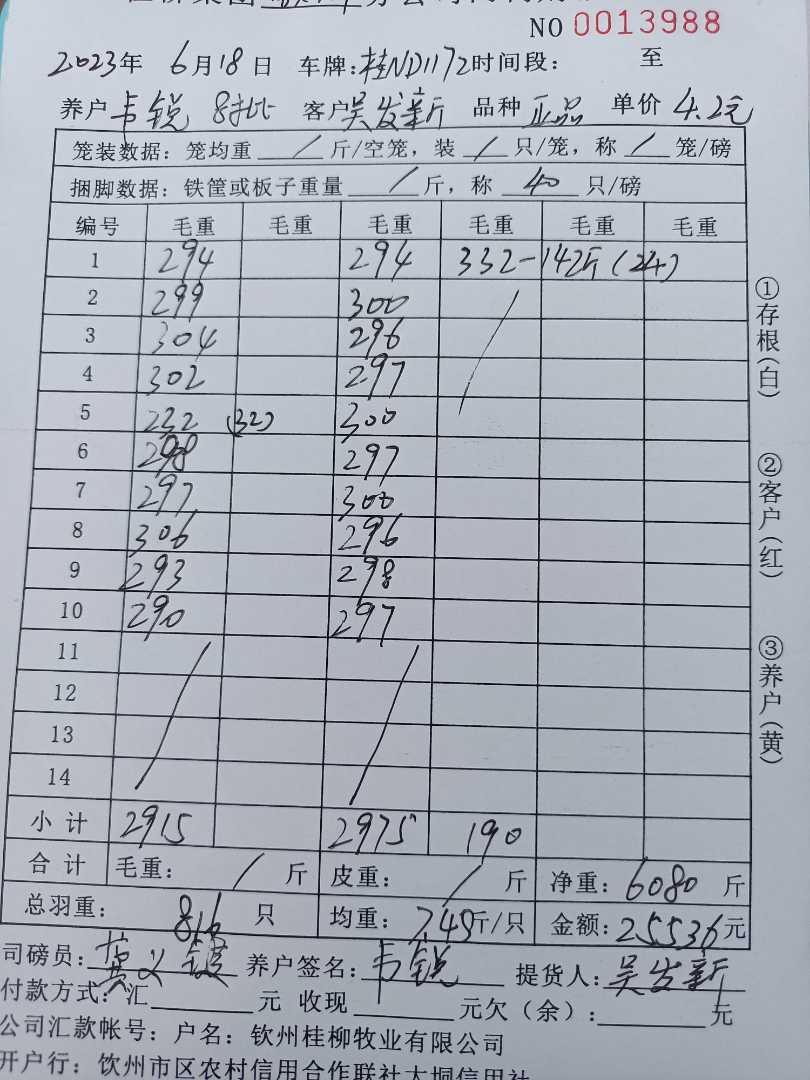 NO 0013988
2023年 6月18日 车牌:桂ND1172 时间段: 至
养户 韦锐 8批 客户 吴发新 品种 正品 单价 4.2元
笼装数据: 笼均重 / 斤/空笼, 装 / 只/笼, 称 / 笼/磅
捆脚数据: 铁筐或板子重量 / 斤, 称 40 只/磅
编号 毛重 毛重 毛重 毛重 毛重 毛重
1 294 294 332-142斤(24)
2 299 300
3 304 296
4 302 297
5 232 (32) 300
6 298 297
7 297 300
8 306 296
9 293 298
10 290 297
11
12
13
14
小计 2915 2975 190
合计 毛重: / 斤 皮重: / 斤 净重: 6080 斤
总羽重: 816 只 均重: 7.45斤/只 金额: 25536元
司磅员: 养户签名: 韦锐 提货人: 吴发新
付款方式: 汇 元 收现 元欠(余): 元
公司汇款帐号: 户名: 钦州桂柳牧业有限公司
开户行: 钦州市区农村信用合作联社大垌信用社
①存根(白)
②客户(红)
③养户(黄)